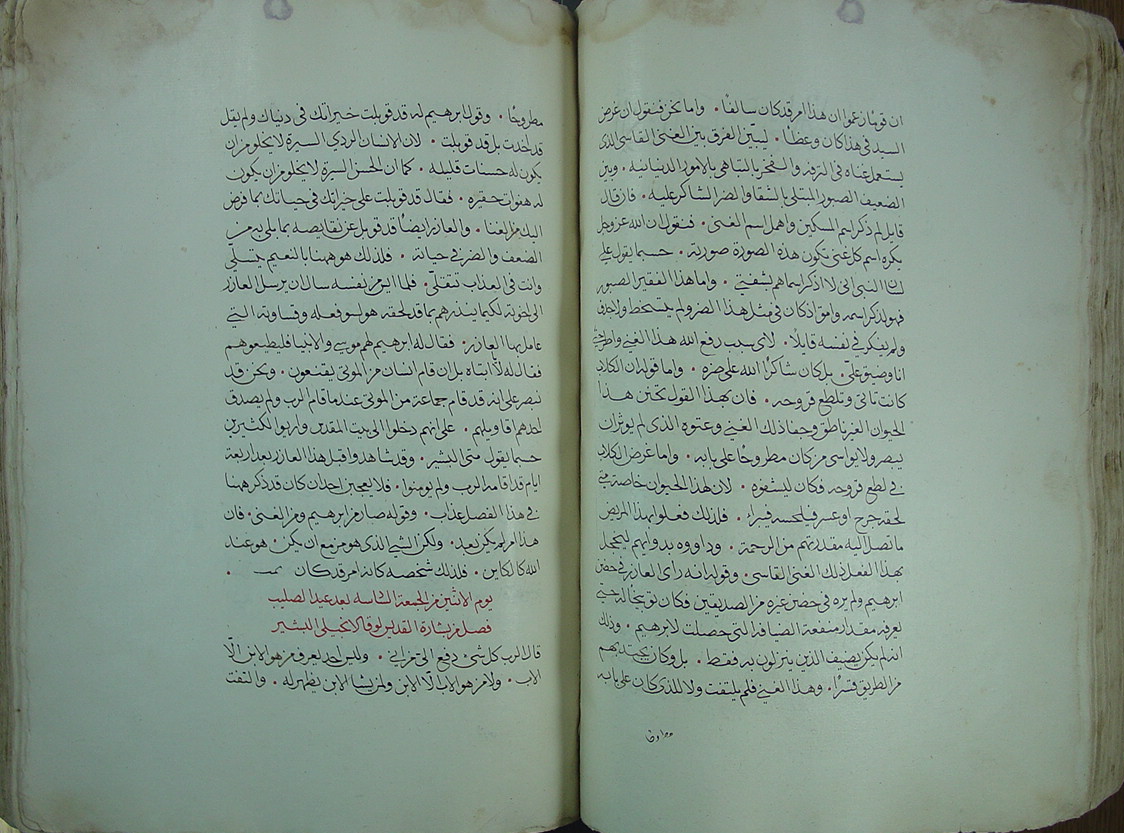 ان قوما زعموا ان هذا امر قد كان سالفا. واما نحن فنقول ان غرض
السيد في هذا كان وعظا. ليبين الفرق بين الغني القاسي الذي
يستعمل غناه في الترفه والتفخر بالتباهي بالامور الدنيانيه. وبين
الضعيف الصبور المبتلي بالشقا والضر الشاكر عليه. فان قال
قايل لم ذكر اسم المسكين واهمل اسم الغني. فنقول ان الله عز وجل
يكره اسم كل غني تكون هذه الصورة صورته. حسبما يقول على
لسان النبي اني لا اذكر اسماهم بشفتي. واما هذا الفقير الصبور
فهو لذكر اسمه وامق اذ كان في مثل هذا الضر ولم يتسخط ولا جدف
ولم يفكر في نفسه قايلا. لاي سبب رفع الله هذا الغني واطرحني
انا وضيق علي. بل كان شاكرا الله على ضره. واما قوله ان الكلاب
كانت تاتي وتلطع قروحه. فان بهذا القول تحنن هذا
الحيوان الغير ناطق وجفا ذلك الغني وعتوه الذي لم يوثر ان
يبصر ولا يواسي من كان مطروحا على بابه. واما غرض الكلاب
في لطع قروحه فكان ليشفوه. لان لهذا الحيوان خاصه متى
لحقه جرح او عسر فيلحسه فيبرا. فلذلك فعلوا بهذا المريض
ما تصل اليه مقدرتهم من الرحمة. وداووه بدوايهم ليخجل
بهذا الفعل ذلك الغني القاسي. وقوله انه راى العازر في حضن
ابرهيم ولم يره في حضن غيره من الصديقين فكان توبيخا له حتي
يعرفه مقدار منفعة الضيافه التي حصلت لابرهيم. وذلك
انه لم يكن يضيف الذين ينزلون به فقط. بل وكان يجتذبهم
من الطريق قسرا. وهذا الغني فلم يلتفت ولا للذي كان على بابه
مطروحا
مطروحا. وقول ابرهيم له قد قوبلت خيراتك في دنياك ولم يقل
قد اخذت بل قد قوبلت. لان الانسان الردي السيرة لا يخلو من ان
يكون له حسنات قليله. كما ان الحسن السيرة لا يخلو من ان يكون
له هفوات حقيره. فقال قد قوبلت على خيراتك في حياتك بما فوض
اليك من الغنا. والعازر ايضا قد قوبل عن نقايصه بما بلي به من
الضعف والضر في حياته. فلذلك هو ههنا بالنعيم يتسلى
وانت في العذاب تتقلى. فلما ايس من نفسه سال ان يرسل العازر
الى اخوته لكيما ينذرهم بما قد لحقه هو لسو فعله وقساوته التي
عامل بها العازر. فقال له ابرهيم لهم موسي والانبيا فليطيعوهم
فقال له لا يا ابتاه بل ان قام انسان من الموتى يقتنعون. ونحن قد
نبصر على انه قد قام جماعة من الموتى عند ما قام الرب ولم يصدق
احدهم اقاويلهم. على انهم دخلوا الى بيت المقدس واربوا الكثيرين
حسبما يقول متى البشير. وقد شاهدوا قبل هذا العازر بعد اربعة
ايام قد اقامه الرب ولم يومنوا. فلا يعجبن احد ان كان قد ذكر ههنا
في هذا الفصل عذاب. وقوله صار من ابرهيم ومن الغني. فان
هذا امر لم يكن بعد. ولكن الشي الذي هو مزمع ان يكن. هو عند
الله كالكاين. فلذلك شخصه كانه امر قد كان تمت.
يوم الاثنين من الجمعة السادسه بعد عيد الصليب
فصل من بشارة القديس لوقا الانجيلي البشير
قال الرب كل شي دفع الي من ابي. وليس احد يعرف من هو الابن الا
الاب. ولا من هو الاب الا الابن ولمن يشا الابن يظهر له. والتفت